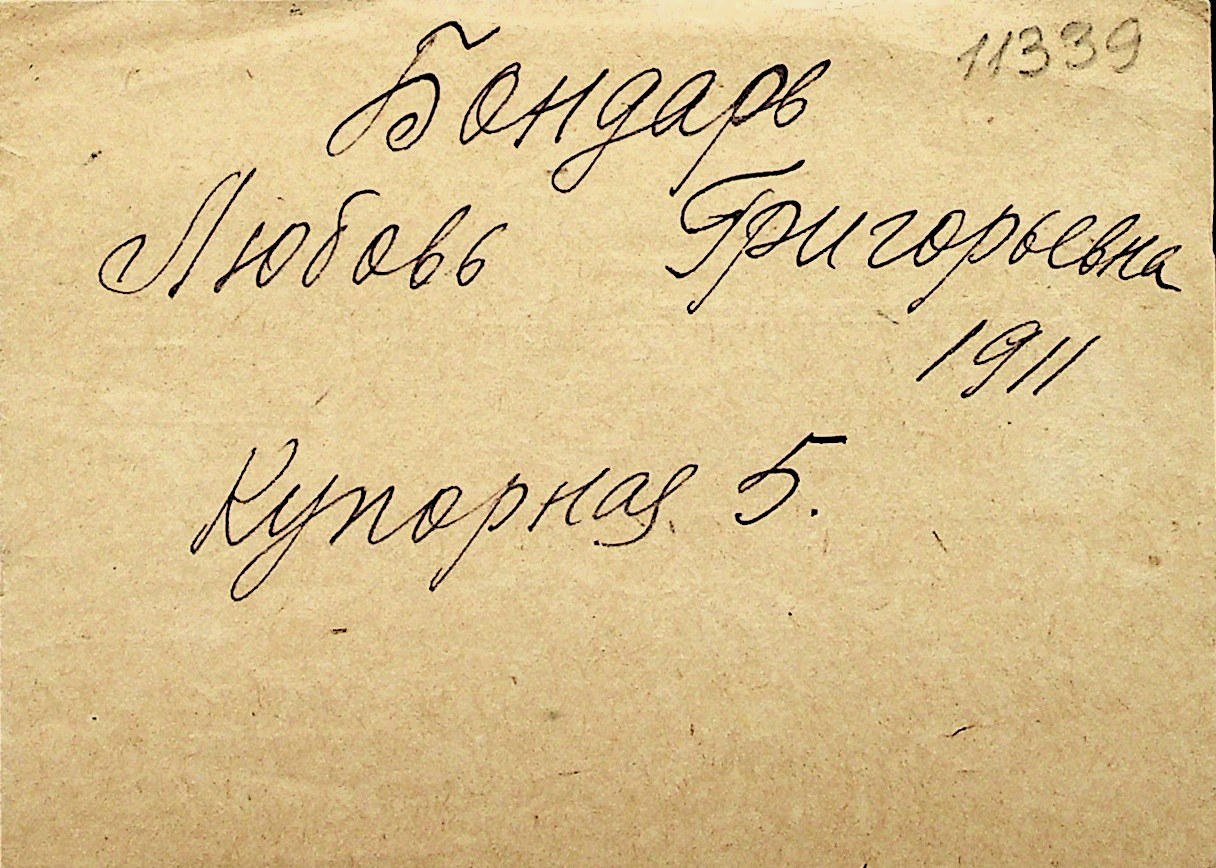 11339
Бондарь
Любовь Григорьевна
1911
Купорная 5.